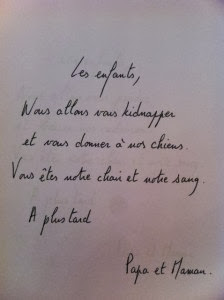 Les enfants,
Nous allons vous kidnapper
et vous donner à nos chiens.
Vous êtes notre chair et notre sang.
A plus tard
Papa et Maman.